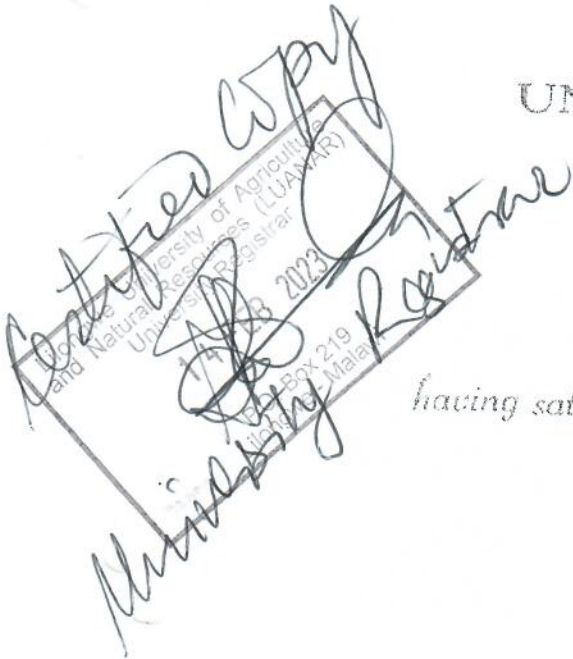 Certified Copy
UN
Lilongwe University of Agriculture
and Natural Resources (LUANAR)
University Registrar
14 FEB 2023
P.O. Box 219
Lilongwe, Malawi
University Registrar
having sat